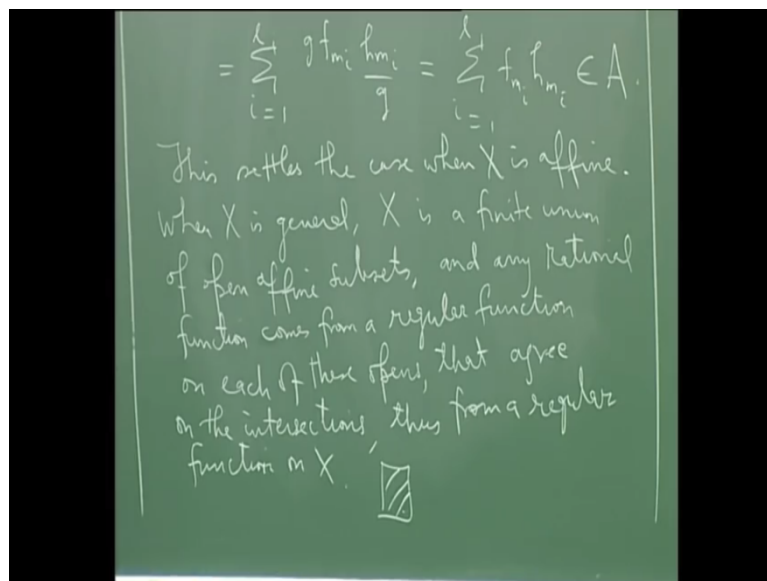 = \sum_{i=1}^{l} g f_{m_i} \frac{h_{m_i}}{g} = \sum_{i=1}^{l} f_{m_i} h_{m_i} \in A.
This settles the case when X is affine.
When X is general, X is a finite union
of open affine subsets, and any rational
function comes from a regular function
on each of these opens, that agree
on the intersections, thus from a regular
function on X.